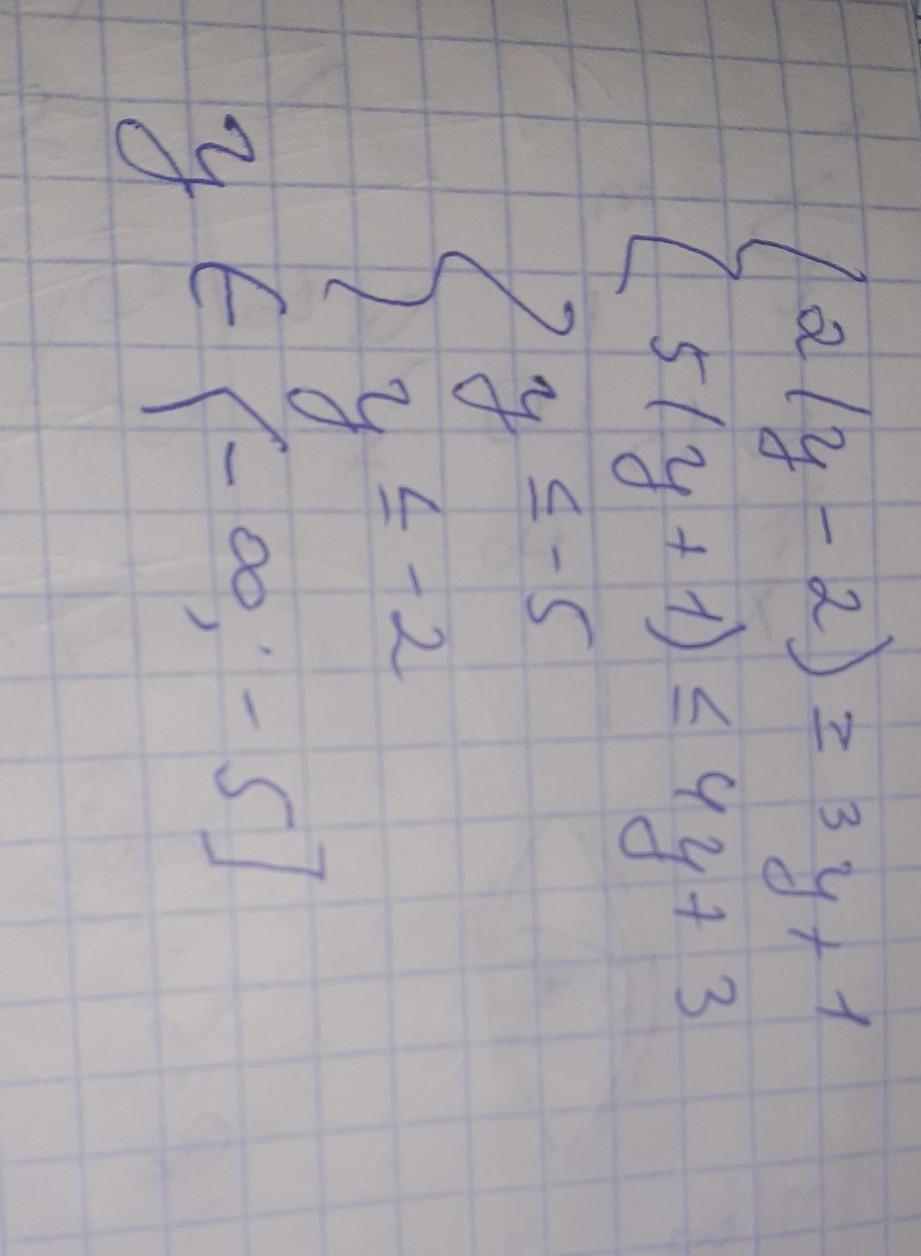 { 2(y - 2) ≥ 3y + 1
{ 5(y + 1) ≤ 4y + 3
{ y ≤ -5
{ y ≤ -2
y ∈ (-∞; -5]